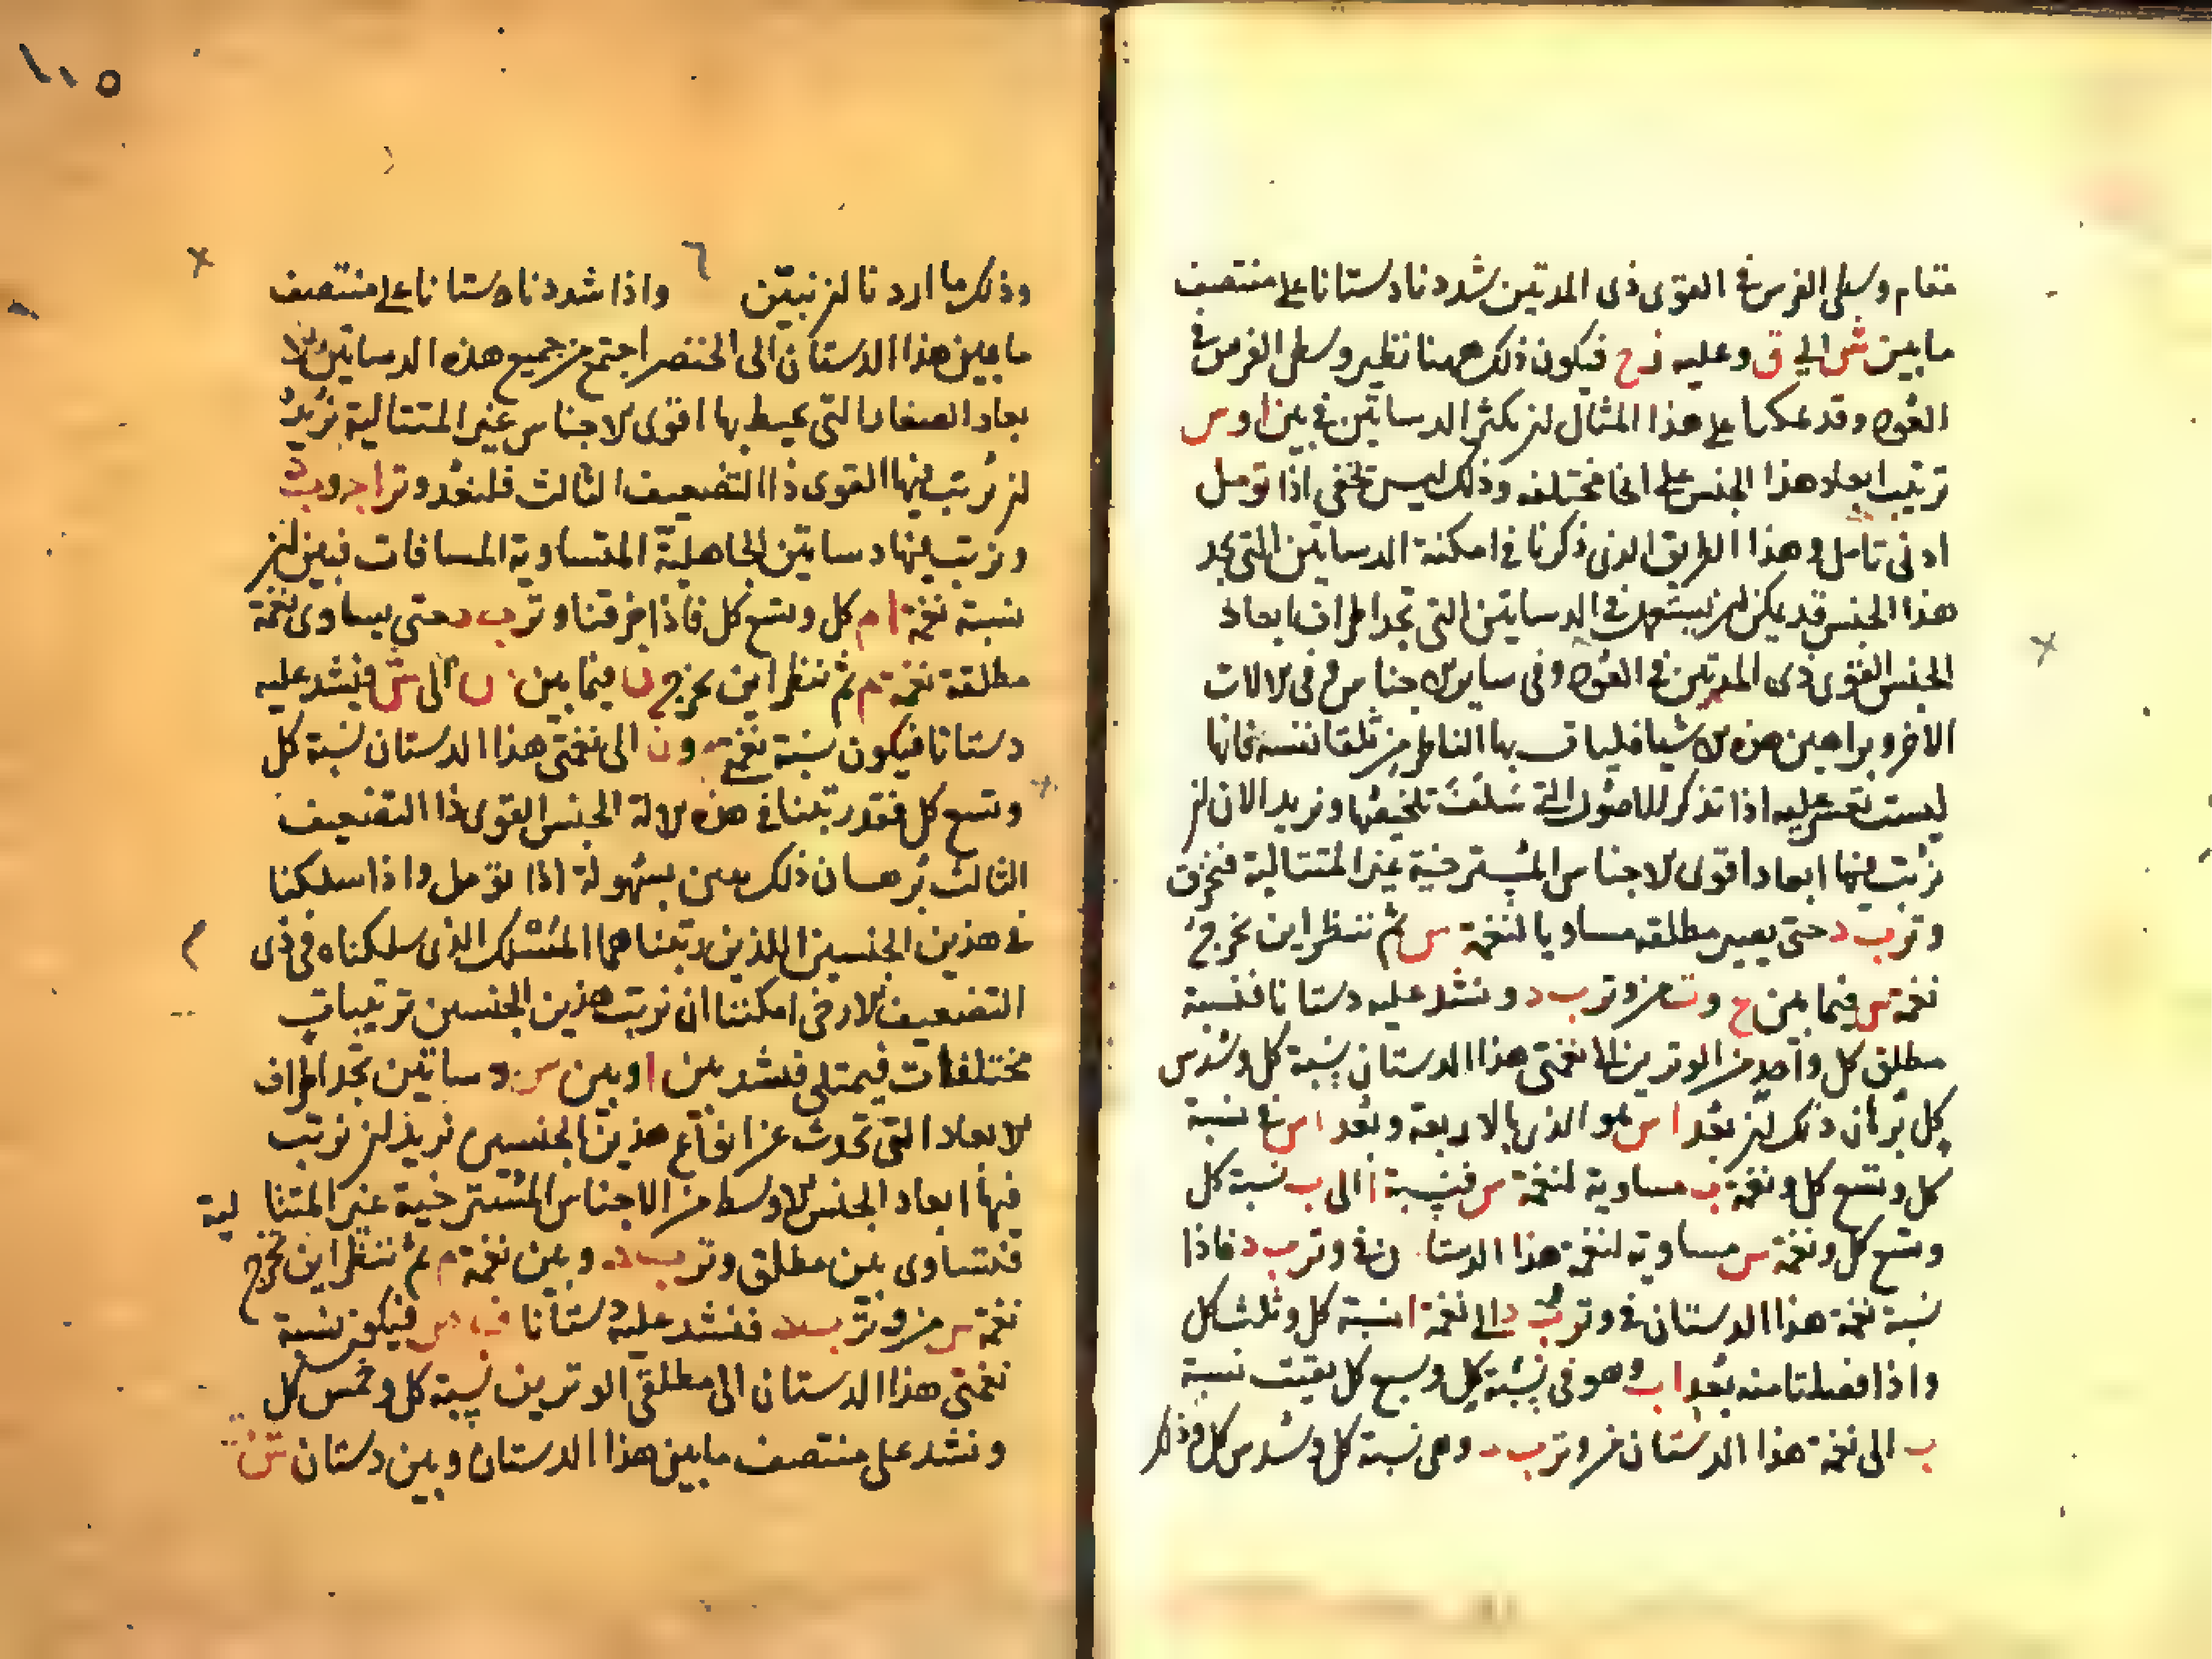 مقام وسطى الفرس في القوى ذى المدتين شددنا دستانا على منتصف
ما بين ش الى ق وعليه ذ ح فيكون ذلك ههنا نظير وسطى الفرس في
العود وقد يمكنا على هذا المثال ان نكثر الدساتين في بين ا و س
ترتيب ابعاد هذا الجنس على انحا مختلفه وذلك ليس يخفى اذا تومل
ادنى تامل وهذا الطريق الذى ذكرنا في امكنة الدساتين التى تحد
هذا الجنس قد يمكن ان يستعمل في الدساتين التى تحد اطراف ابعاد
الجنس القوى ذى المدتين في العود وفى ساير الاجناس وفى الالات
الاخر وبراهين هذه الاشيا فليات بها الناظر من تلقا نفسه فانها
ليست تعسر عليه اذا تذكر للاصول التى سلفت تلخيصها ونريد الان ان
نرتب فيها ابعاد اقوى الاجناس المسترخية غير المتتالية فنخرق
وتر ب د حتى يصير مطلقه مساويا لنغمة س ثم ننظر اين تخرج
نغمة س فيما بين ح و ت من وتر ب د ونشد عليه دستانا فنسبة
مطلق كل واحد من الوترين الى نغمتى هذا الدستان نسبة كل وسدس
كل برهان ذلك ان بعد ا س هو الذى بالاربعة وبعد ا س في نسبة
كل وتسع كل ونغمة ب مساوية لنغمة س فنسبة ا الى ب نسبة كل
وتسع كل ونغمة س مساوية لنغمة هذا الدستان في وتر ب د فاذا
نسبة نغمة هذا الدستان في وتر ب د الى نغمة ا نسبة كل وثلث كل
واذا فصلنا منه بعد ا ب وهو في نسبة كل وسبع كل بقيت نسبة
ب الى نغمة هذا الدستان من وتر ب د وهى نسبة كل وسدس كل وذلك
١١٥
وذلك ما اردنا ان نبين واذا شددنا دستانا على منتصف
ما بين هذا الدستان الى الخنصر اجتمع من جميع هذه الدساتين الا
بعاد الصغار التى يحيط بها اقوى الاجناس غير المتتالية نريد
ان نرتب فيها القوى ذا التضعيف الثالث فلنعد وتر ا ج و ب د
ونرتب فيها دساتين الجاهلية المتساوية المسافات فبين ان
نسبة نغمة ا م كل وتسع كل فاذا خرقنا وتر ب د حتى يساوى نغمة
مطلقة نغمة م ثم ننظر اين تخرج ن فيما بين ن الى ش فنشد عليه
دستانا فيكون نسبة نغمة م و ن الى نغمتى هذا الدستان نسبة كل
وتسع كل فقد رتبنا في هذه الالة الجنس القوى ذا التضعيف
الثالث برهان ذلك يبين بسهولة اذا تومل واذا سلكنا
في هذين الجنسين اللذين رتبناهما المسلك الذى سلكناه في ذى
التضعيف الارخى امكننا ان نرتب هذين الجنسين ترتيبات
مختلفات فيمتلى فنشد بين ا وبين س دساتين تحد اطراف
الابعاد التى تحدث عن انواع هذين الجنسين نريد ان نرتب
فيها ابعاد الجنس الاوسط من الاجناس المسترخية غير المتتا لية
فنساوى بين مطلق وتر ب د وبين نغمة م ثم ننظر اين تخرج
نغمة س من وتر ب د فنشد عليه دستانا فيكون نسبة
نغمتى هذا الدستان الى مطلقى الوترين نسبة كل وخمس كل
ونشد على منتصف ما بين هذا الدستان وبين دستان ش ن